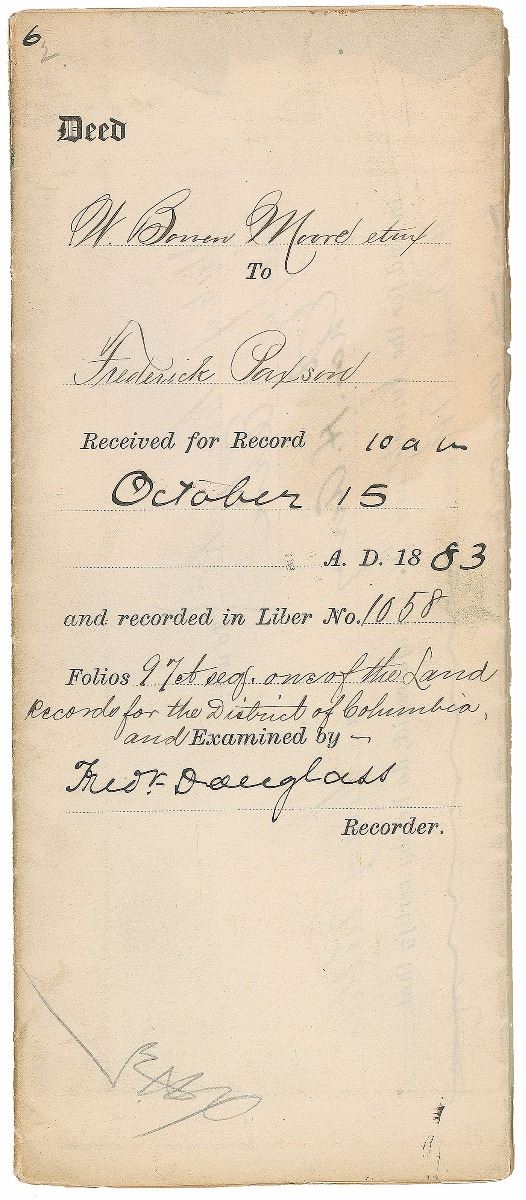 6
Deed
W. Bowen Moore et ux
To
Frederick Paxson
Received for Record 10 a m
October 15
A. D. 1883
and recorded in Liber No. 1058
Folios 97 et seq. one of the Land
Records for the District of Columbia,
and Examined by —
Fredk Douglass
Recorder.